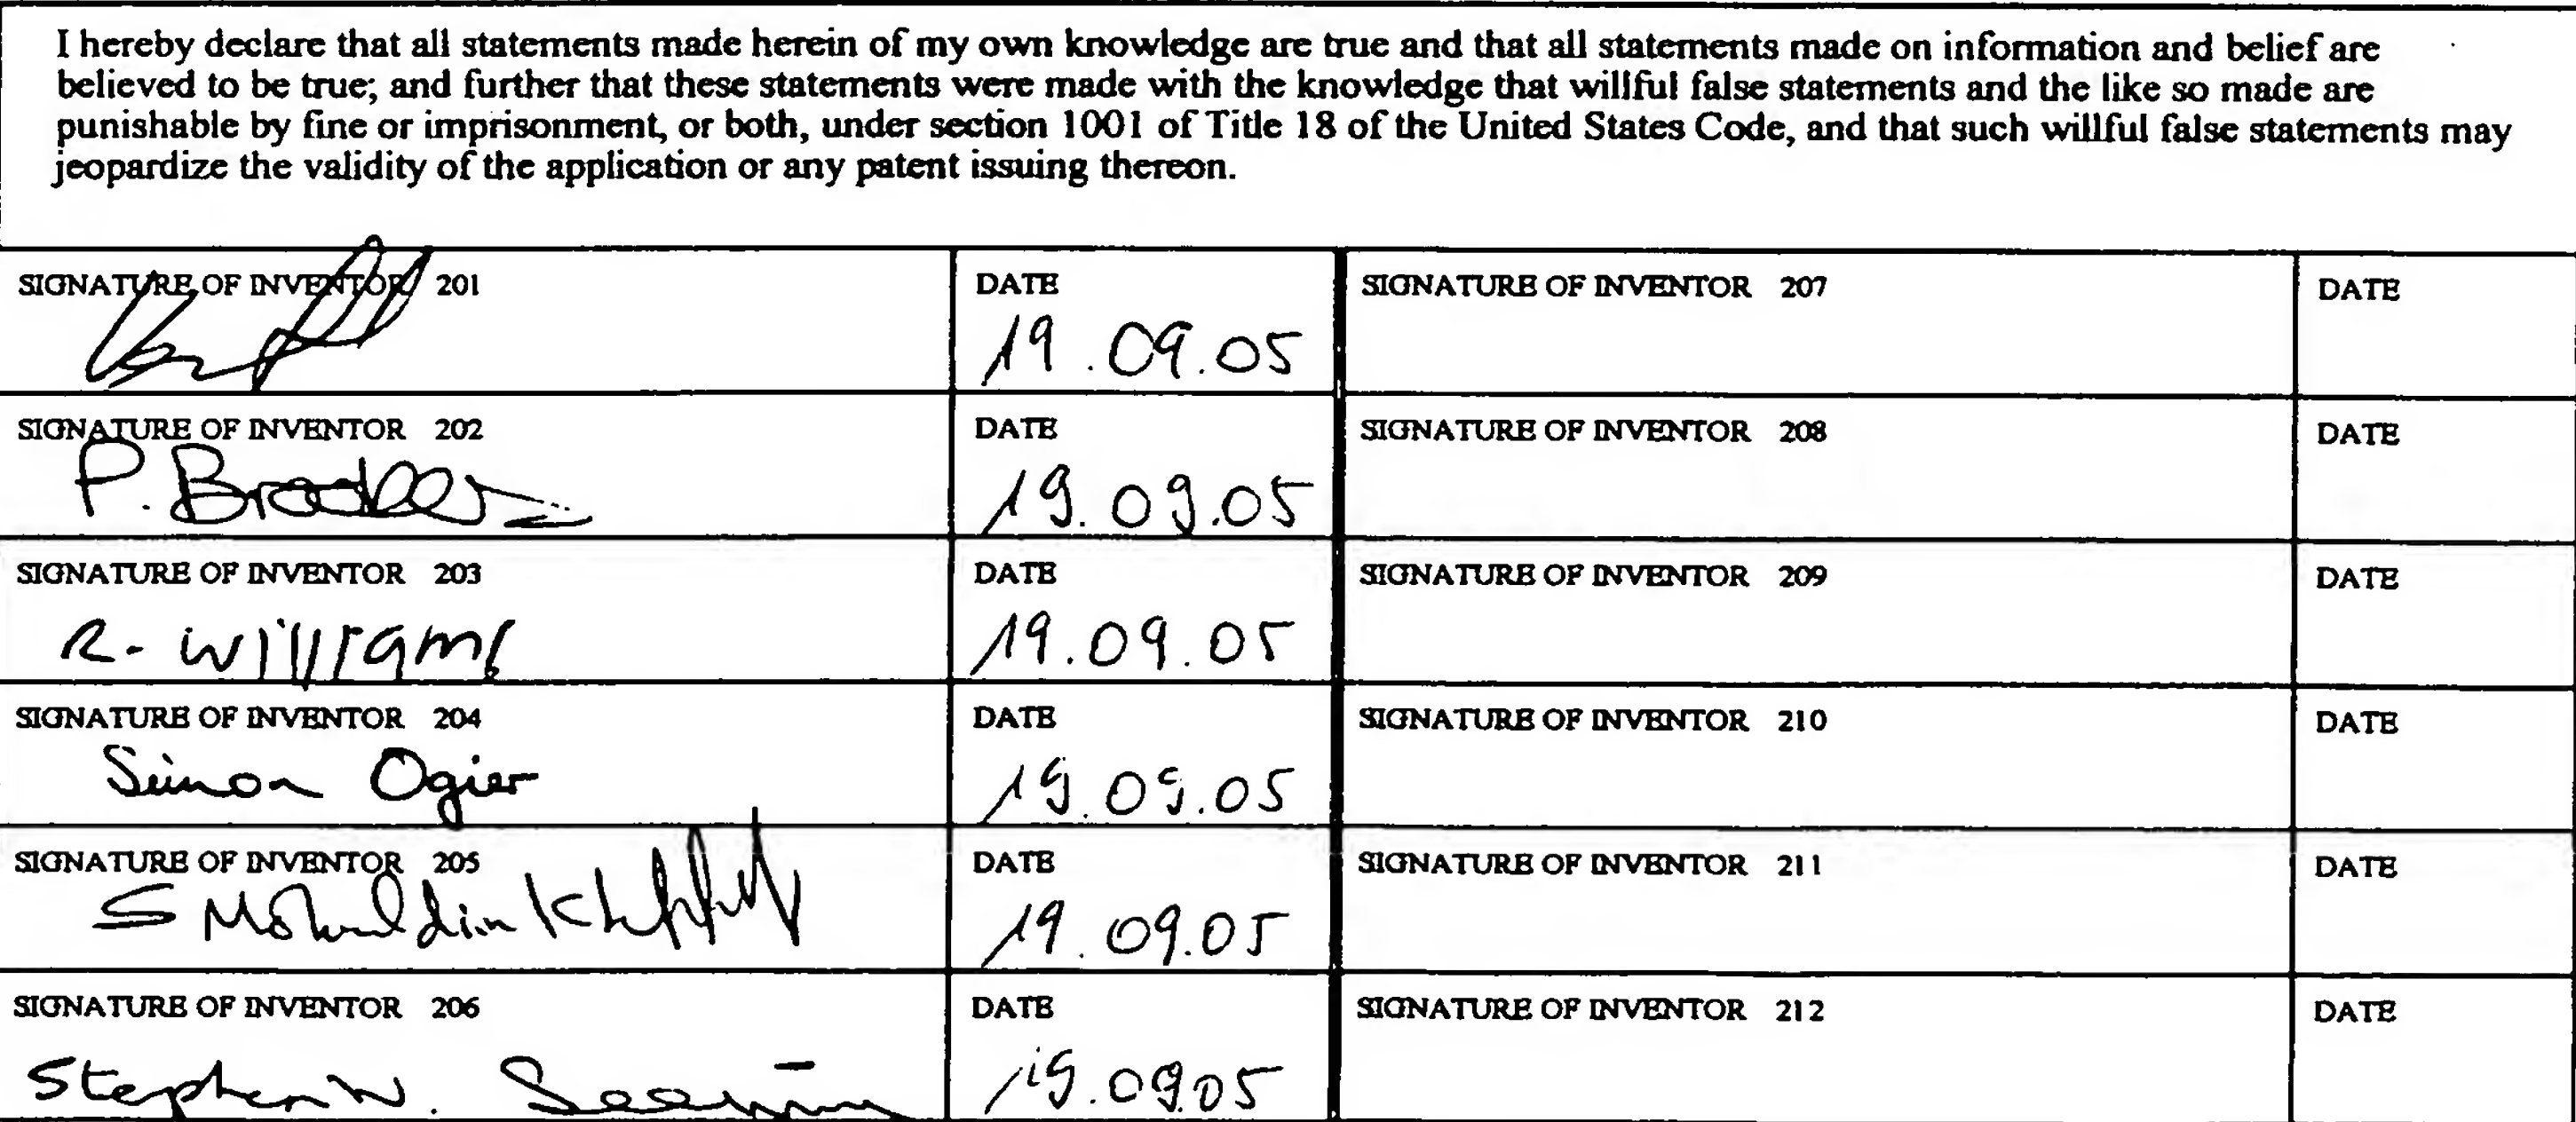 I hereby declare that all statements made herein of my own knowledge are true and that all statements made on information and belief are
believed to be true; and further that these statements were made with the knowledge that willful false statements and the like so made are
punishable by fine or imprisonment, or both, under section 1001 of Title 18 of the United States Code, and that such willful false statements may
jeopardize the validity of the application or any patent issuing thereon.
SIGNATURE OF INVENTOR 201 DATE SIGNATURE OF INVENTOR 207 DATE
19.09.05
SIGNATURE OF INVENTOR 202 DATE SIGNATURE OF INVENTOR 208 DATE
P. 19.09.05
SIGNATURE OF INVENTOR 203 DATE SIGNATURE OF INVENTOR 209 DATE
R. Williams 19.09.05
SIGNATURE OF INVENTOR 204 DATE SIGNATURE OF INVENTOR 210 DATE
Simon Ogier 19.09.05
SIGNATURE OF INVENTOR 205 DATE SIGNATURE OF INVENTOR 211 DATE
S 19.09.05
SIGNATURE OF INVENTOR 206 DATE SIGNATURE OF INVENTOR 212 DATE
Stephen W. 19.09.05